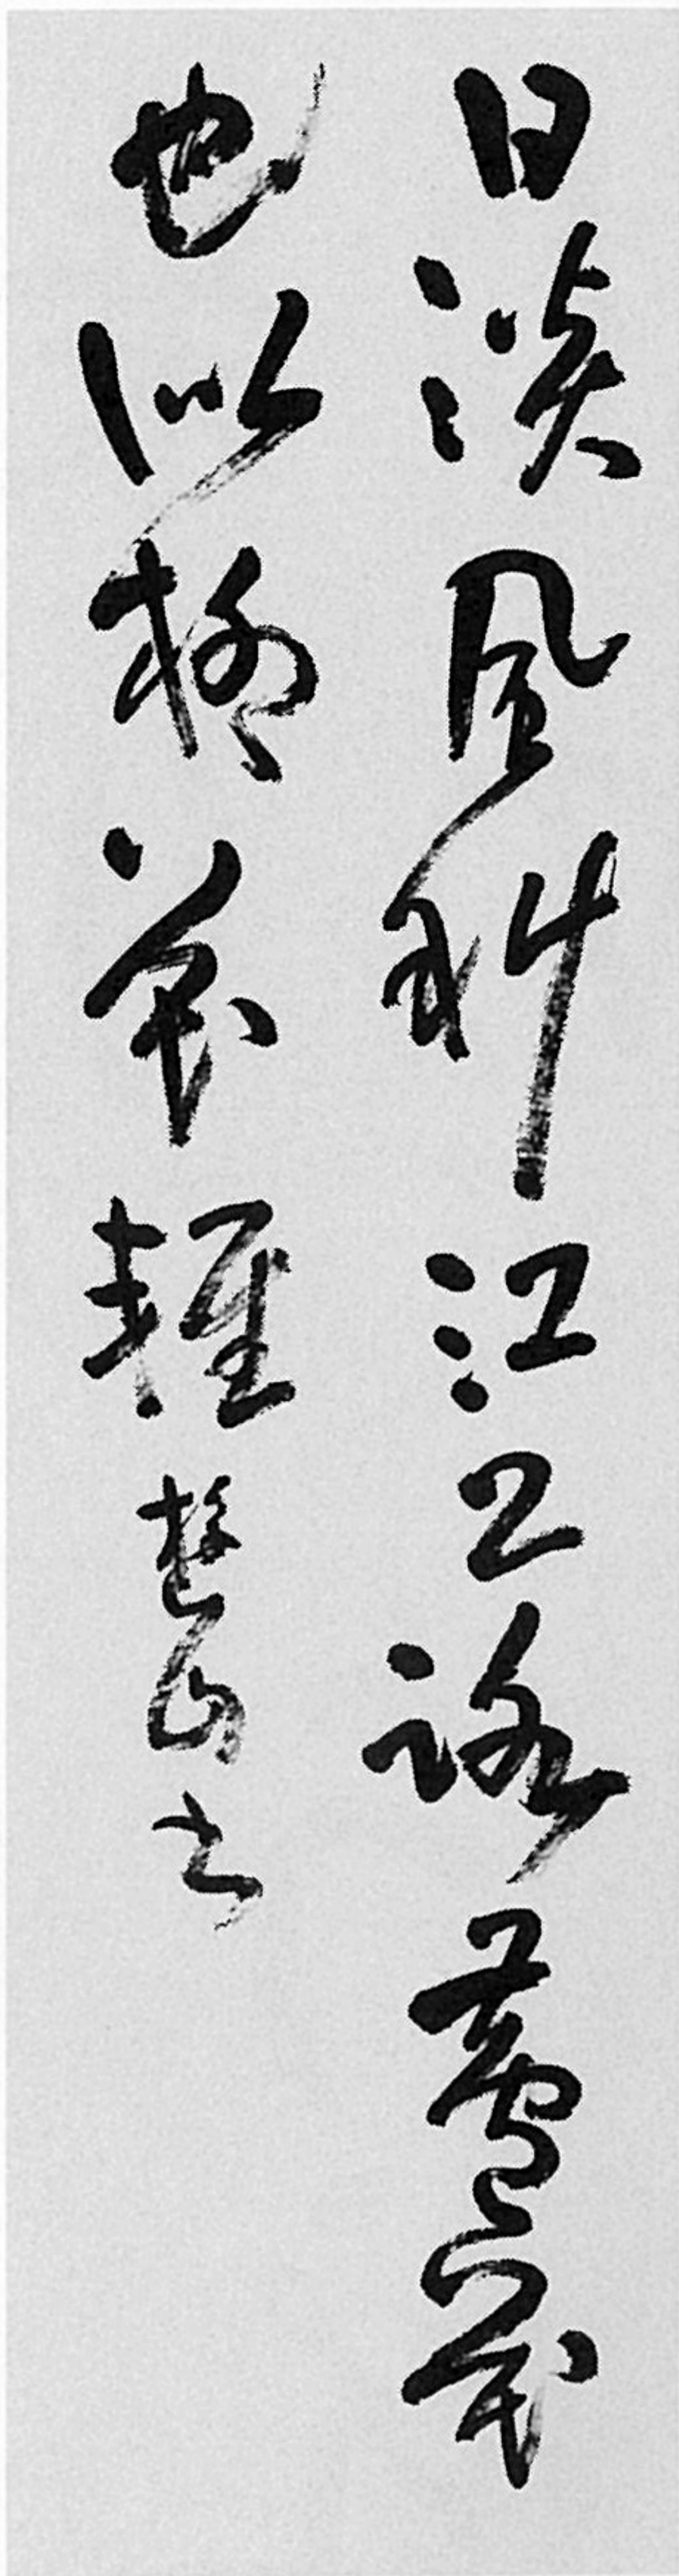 日淡風斜江上路蘆花
也似柳花輕 楚山書